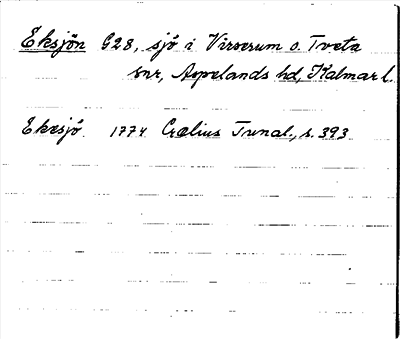 Eksjön G28, sjö i Virserum o. Tveta
snr, Aspelands hd, Kalmar l.
Ekesjö 1774 Crælius Tunal., s. 393